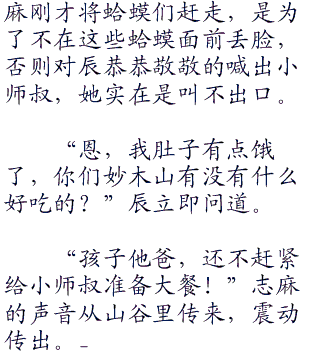 麻刚才将蛤蟆们赶走，是为
了不在这些蛤蟆面前丢脸，
否则对辰恭恭敬敬的喊出小
师叔，她实在是叫不出口。
“恩，我肚子有点饿
了，你们妙木山有没有什么
好吃的？”辰立即问道。
“孩子他爸，还不赶紧
给小师叔准备大餐！”志麻
的声音从山谷里传来，震动
传出。–